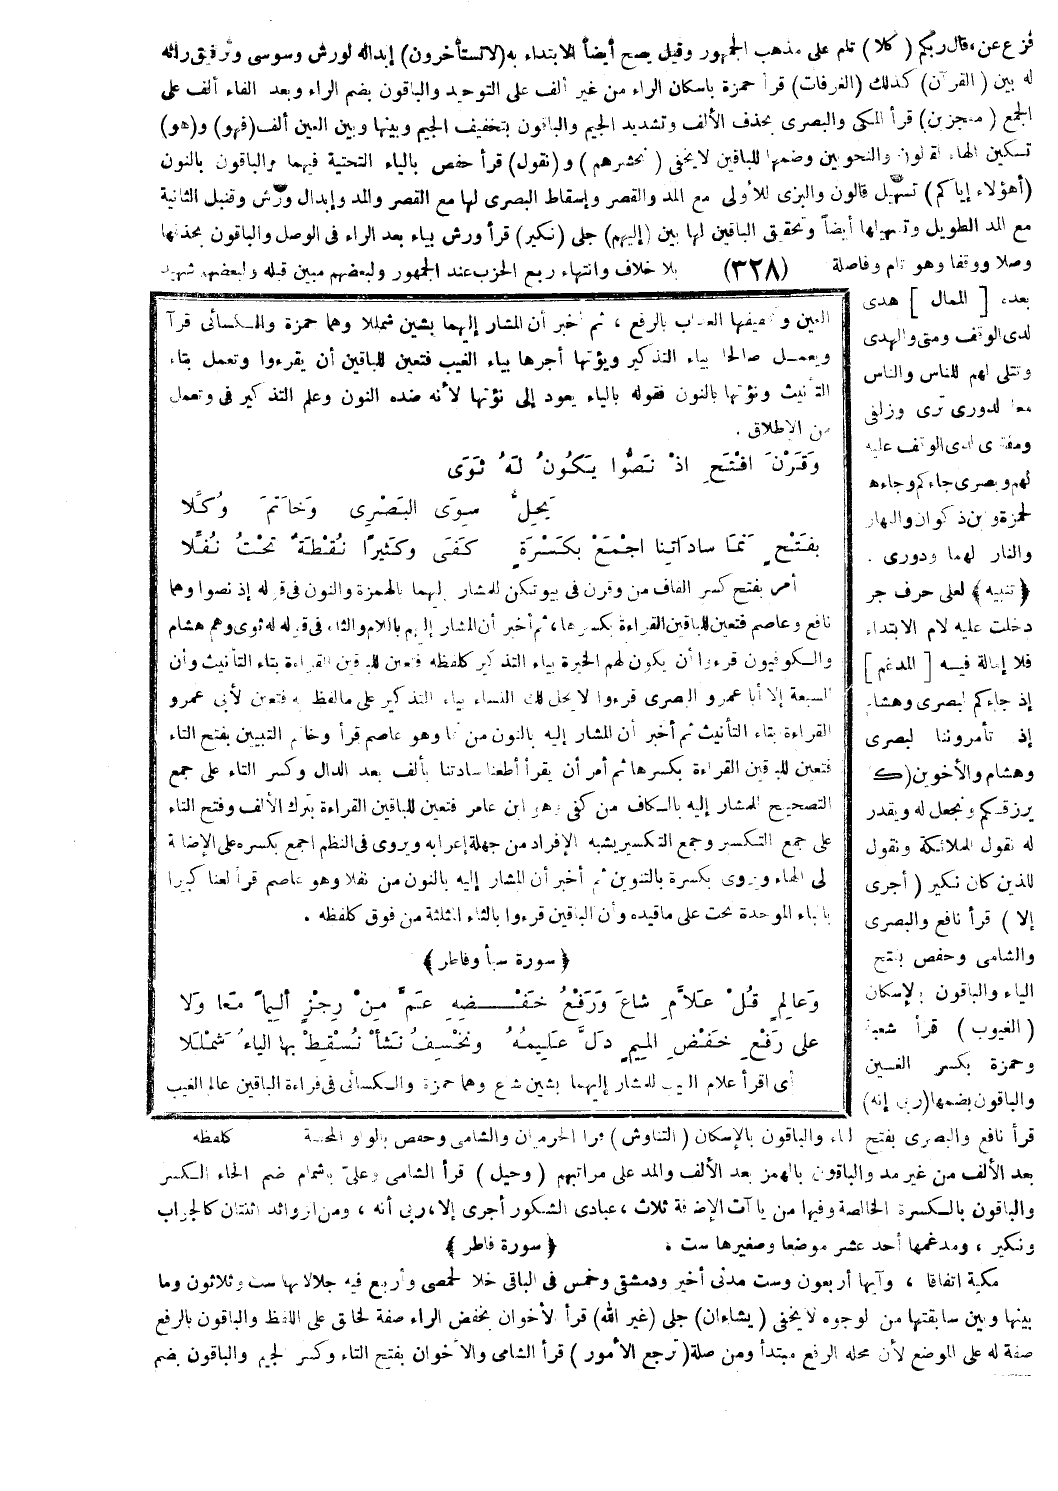 فزع عن، قال ربكم (كلا) تام على مذهب الجمهور وقيل يصح أيضاً الابتداء به (لا تستأخرون) إبداله لورش وسوسى وترقيق رائه
له بين (القرآن) كذلك (الغرفات) قرأ حمزة باسكان الراء من غير ألف على التوحيد والباقون بضم الراء وبعد الفاء ألف على
الجمع (معجزين) قرأ المكى والبصرى بحذف الألف وتشديد الجيم والباقون بتخفيف الجيم وبينها وبين العين ألف (فهو) و(هو)
تسكين الهاء لقالون والنحويين وضمها للباقين لا يخفى (نحشرهم) و(نقول) قرأ حفص بالياء التحتية فيهما والباقون بالنون
(أهؤلاء إياكم) تسهيل قالون والبزى للأولى مع المد والقصر وإسقاط البصرى لها مع القصر والمد وإبدال ورش وقنبل الثانية
مع المد الطويل وتسهيلها أيضاً وتحقيق الباقين لها بين (إليهم) جلى (نكير) قرأ ورش بياء بعد الراء فى الوصل والباقون بحذفها
وصلا ووقفا وهو تام وفاصلة (٣٢٨) بلا خلاف وانتهاء ربع الحزب عند الجمهور ولبعضهم مبين قبله ولبعضهم شهيد
بعده [الممال] هدى
لدى الوقف ومتى والهدى
وتتلى لهم للناس والناس
معا لدورى ترى وزلفى
ومفترى لدى الوقف عليه
لهم وبصرى جاءكم وجاءهم
لحمزة وابن ذكوان والنهار
والنار لهما ودورى .
﴿تنبيه﴾ لعلى حرف جر
دخلت عليه لام الابتداء
فلا إمالة فيه [المدغم]
إذ جاءكم لبصرى وهشام
إذ تأمروننا لبصرى
وهشام والأخوين (ك)
يرزقكم ونجعل له ويقدر
له نقول للملائكة ونقول
للذين كان نكير (أجرى
إلا) قرأ نافع والبصرى
والشامى وحفص بفتح
الياء والباقون بالإسكان
(الغيوب) قرأ شعبة
وحمزة بكسر الغين
والباقون بضمها (ربى إنه)
العين وتخفيفها العذاب بالرفع ، ثم أخبر أن المشار إليهما بشين شمللا وهما حمزة والكسائى قرآ
ويعمل صالحا بياء التذكير ويؤتها أجرها بياء الغيب فتعين للباقين أن يقرءوا وتعمل بتاء
التأنيث ونؤتها بالنون فقوله بالياء يعود إلى نؤتها لأنه ضده النون وعلم التذكير فى وتعمل
من الإطلاق .
وَقَرْنَ افْتَحِ اذْ نَصُّوا يَكُونُ لَهُ ثَوَى
يَحِلُّ سِوَى البَصْرِى وَخَاتَمَ وُكِّلا
بِفَتْحٍ نَمَا سَادَاتِنَا اجْمَعْ بِكَسْرَةٍ كَفَى وَكَثِيرًا نُقْطَةٌ تَحْتُ نُفِّلا
أمر بفتح كسر القاف من وقرن فى بيوتكن للمشار إليهما بالهمزة والنون فى قوله إذ نصوا وهما
نافع وعاصم فتعين للباقين القراءة بكسرها، ثم أخبر أن المشار إليهم باللام والثاء فى قوله له ثوى وهم هشام
والكوفيون قرءوا أن يكون لهم الخيرة بياء التذكير كلفظه فتعين للباقين القراءة بتاء التأنيث وأن
السبعة إلا أبا عمرو البصرى قرءوا لا يحل لك النساء بياء التذكير على ما لفظ به فتعين لأبى عمرو
القراءة بتاء التأنيث ثم أخبر أن المشار إليه بالنون من نما وهو عاصم قرأ وخاتم النبيين بفتح التاء
فتعين للباقين القراءة بكسرها ثم أمر أن يقرأ أطعنا سادتنا بألف بعد الدال وكسر التاء على جمع
التصحيح للمشار إليه بالكاف من كفى وهو ابن عامر فتعين للباقين القراءة بترك الألف وفتح التاء
على جمع التكسر وجمع التكسير يشبه الإفراد من جهة إعرابه ويروى فى النظم اجمع بكسره على الإضافة
إلى الهاء ويروى بكسرة بالتنوين ثم أخبر أن المشار إليه بالنون من نفلا وهو عاصم قرأ لعنا كبيرا
بالباء الموحدة تحت على ما قيده وأن الباقين قرءوا بالثاء المثلثة من فوق كلفظه .
﴿سورة سبأ وفاطر﴾
وَعَالِمِ قُلْ عَلاَّمِ شَاعَ وَرَفْعُ خَفْضِهِ عَمَّ مِنْ رِجْزٍ أَلِيمٍ مَعًا وَلا
عَلَى رَفْعِ خَفْضِ المِيمِ دَلَّ عَلِيمُهُ وَنَخْسِفْ نَشَأْ نُسْقِطْ بِهَا اليَاءُ شَمْلَلا
أى اقرأ علام الغيب للمشار إليهما بشين شاع وهما حمزة والكسائى فى قراءة الباقين عالم الغيب
قرأ نافع والبصرى بفتح الياء والباقون بالإسكان (التناوش) قرأ الحرميان والشامى وحفص بالواو المحضة كلفظه
بعد الألف من غير مد والباقون بالهمز بعد الألف والمد على مراتبهم (وحيل) قرأ الشامى وعلىّ بإشمام ضم الحاء الكسر
والباقون بالكسرة الخالصة وفيها من ياآت الإضافة ثلاث، عبادى الشكور أجرى إلا، ربى أنه ، ومن الزوائد اثنتان كالجواب
ونكير ، ومدغمها أحد عشر موضعا وصغيرها ست . ﴿سورة فاطر﴾
مكية اتفاقا ، وآيها أربعون وست مدنى أخير ودمشقى وخمس فى الباقى خلا لحمصى وأربع فيه جلالاتها ست وثلاثون وما
بينها وبين سابقتها من الوجوه لا يخفى (يشاء إن) جلى (غير الله) قرأ الأخوان بخفض الراء صفة لخالق على اللفظ والباقون بالرفع
صفة له على الموضع لأن محله الرفع مبتدأ ومن صلة (ترجع الأمور) قرأ الشامى والأخوان بفتح التاء وكسر الجيم والباقون بضم